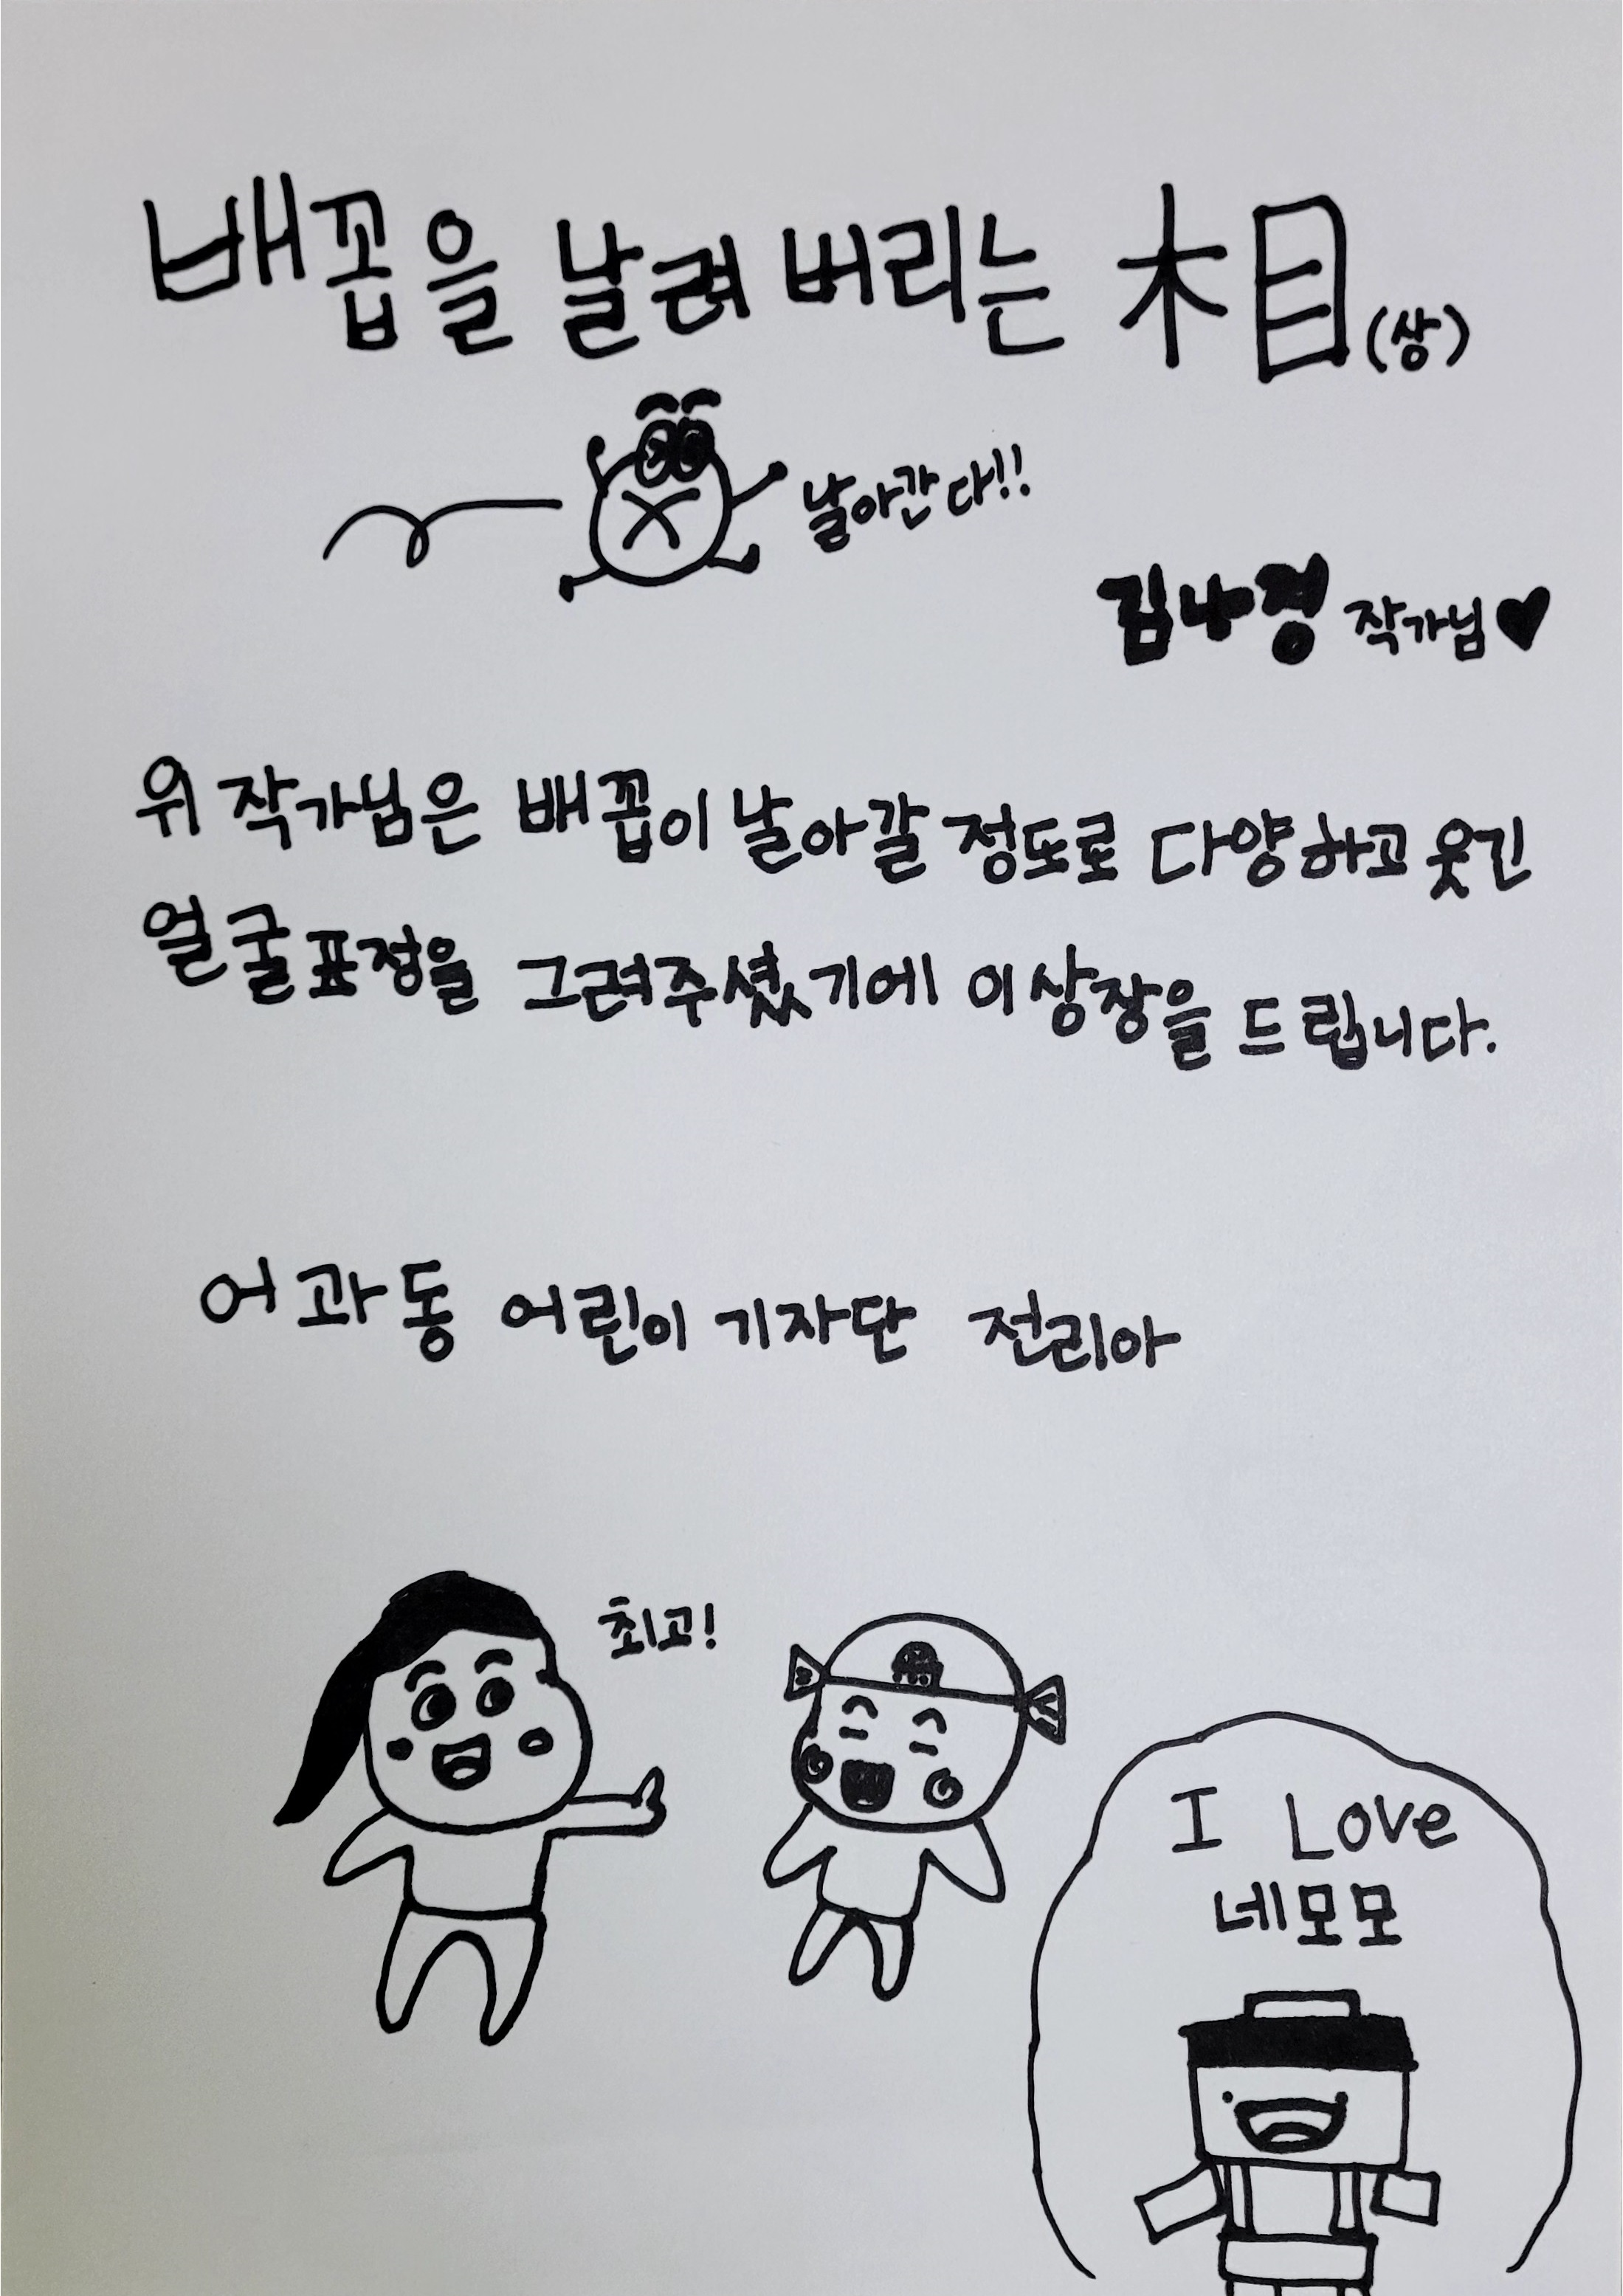 배꼽을 날려 버리는 相(상)
날아간다!!
김나경 작가님♥
위 작가님은 배꼽이 날아갈 정도로 다양하고 웃긴
얼굴표정을 그려주셨기에 이 상장을 드립니다.
어과동 어린이 기자단 전리아
최고!
I Love
네모모